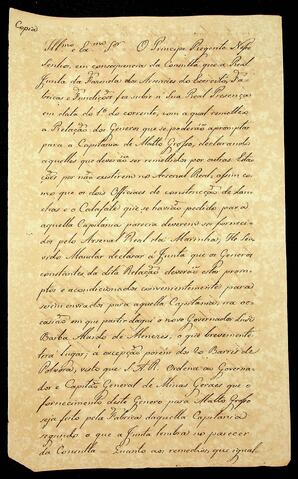 Copia
Illmo e Exmo Snr O Principe Regente N.
Senhor, em consequencia da Consulta que a Real
Junta da Fazenda dos Arsenaes do Exercito, Fa-
bricas e Fundições fez subir a Sua Real Presença
em data do 1º do corrente, com a qual remettêo
a Relação dos Generos que se poderão apromptar
para a Capitania de Matto Grosso, declarando
aquelles que deverião ser remettidos por outras Esta-
ções por não existirem no Arsenal Real, assim co-
mo que os dois Officiaes de construcção de Lan-
chas e o Calafate que se havião pedido para a
quella Capitania parecia deverem ser forneci-
dos pelo Arsenal Real da Marinha; He Ser-
vido Mandar declarar á Junta que os Generos
constantes da dita Relação deverão estar prom-
ptos e acondicionados convenientemente para
serem enviados para aquella Capitania, na oc-
casião em que partir daqui o novo Governador Luiz
Barba Alardo de Menezes, o que brevemente
terá lugar; á excepção porem dos 20 Barris de
Polvora, visto que S. A. R. Ordena ao Governa-
dor e Capitão General de Minas Geraes que o
fornecimento deste Genero para Matto Grosso
seja feito pela Fabrica daquella Capitania
segundo o que a Junta lembra no parecer
da Consulta = Quanto aos remedios, que igual